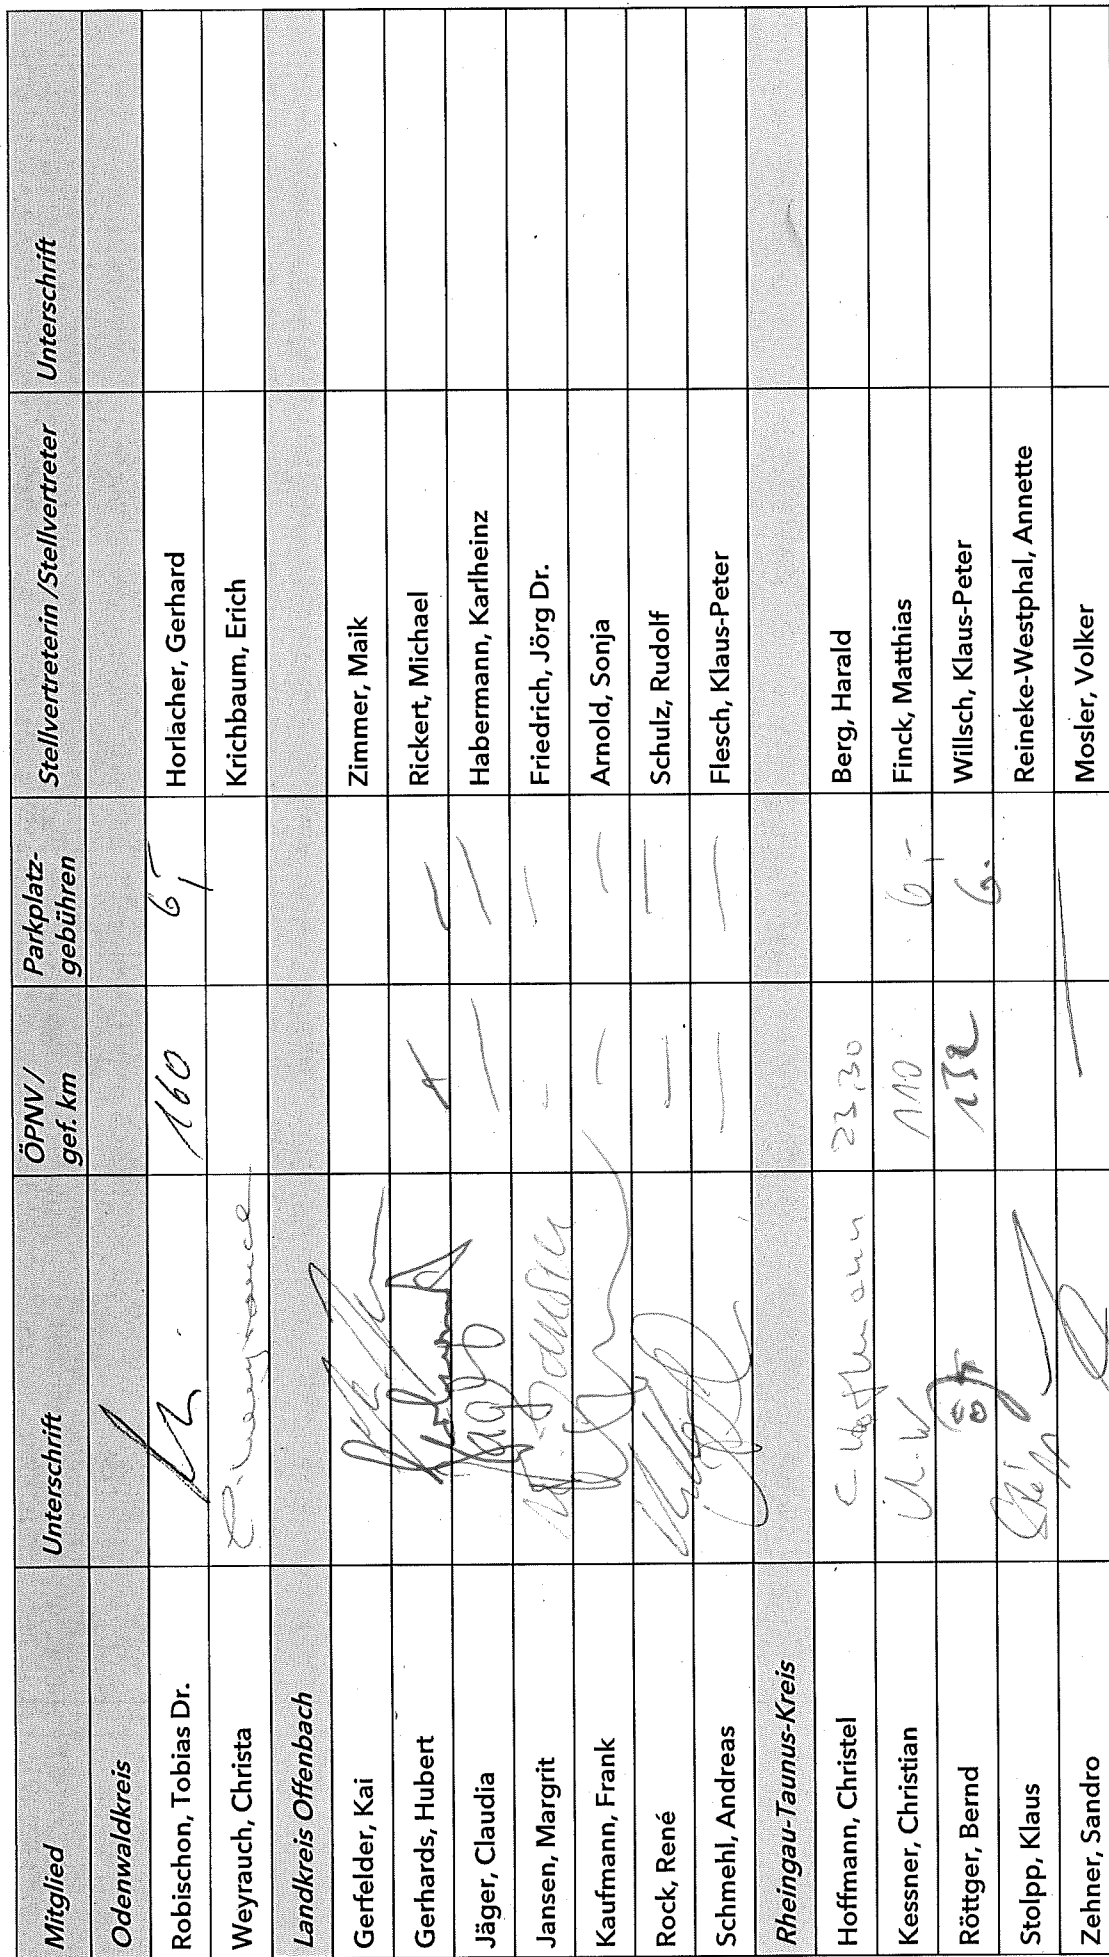 Mitglied Unterschrift ÖPNV / gef. km Parkplatz-gebühren Stellvertreterin /Stellvertreter Unterschrift
Odenwaldkreis
Robischon, Tobias Dr. 160 6,- Horlacher, Gerhard
Weyrauch, Christa Krichbaum, Erich
Landkreis Offenbach
Gerfelder, Kai Zimmer, Maik
Gerhards, Hubert Rickert, Michael
Jäger, Claudia Jäger — — Habermann, Karlheinz
Jansen, Margrit M. Jansen - — Friedrich, Jörg Dr.
Kaufmann, Frank — — Arnold, Sonja
Rock, René — — Schulz, Rudolf
Schmehl, Andreas — — Flesch, Klaus-Peter
Rheingau-Taunus-Kreis
Hoffmann, Christel C. Hoffmann 23,30 Berg, Harald
Kessner, Christian 110 6,- Finck, Matthias
Röttger, Bernd 132 6.- Willsch, Klaus-Peter
Stolpp, Klaus Reineke-Westphal, Annette
Zehner, Sandro — Mosler, Volker